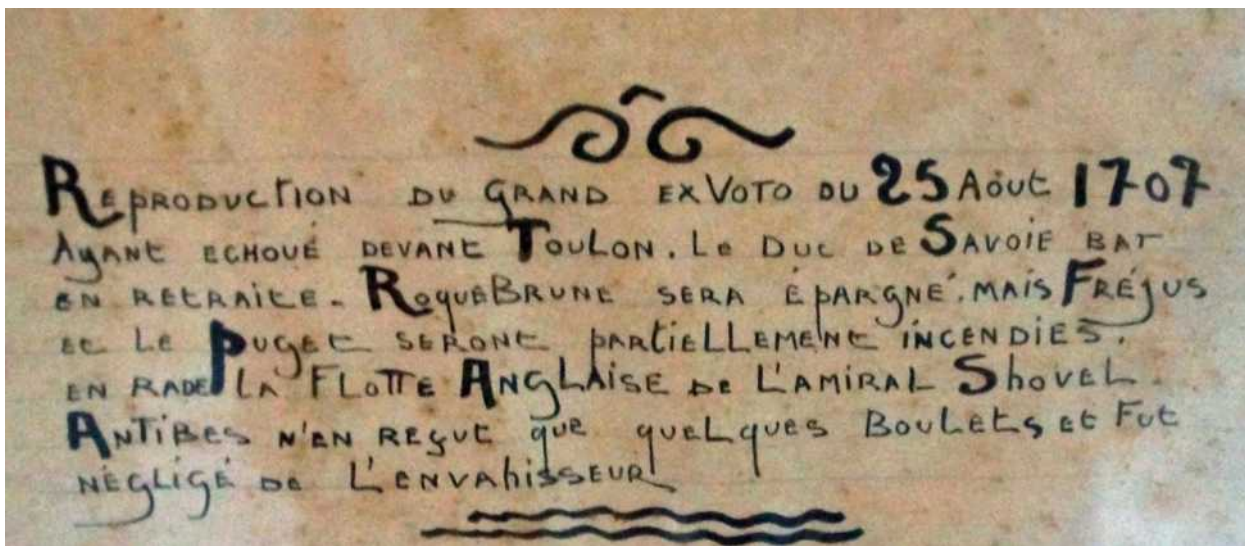 Reproduction du Grand ex Voto du 25 Août 1707
Ayant echoué devant Toulon. Le Duc de Savoie bat
en retraite. RoqueBrune sera épargné. mais Fréjus
et le Puget seront partiellement incendiés.
en rade la Flotte Anglaise de l'amiral Shovel.
Antibes n'en reçut que quelques Boulets et Fut
négligé de l'envahisseur